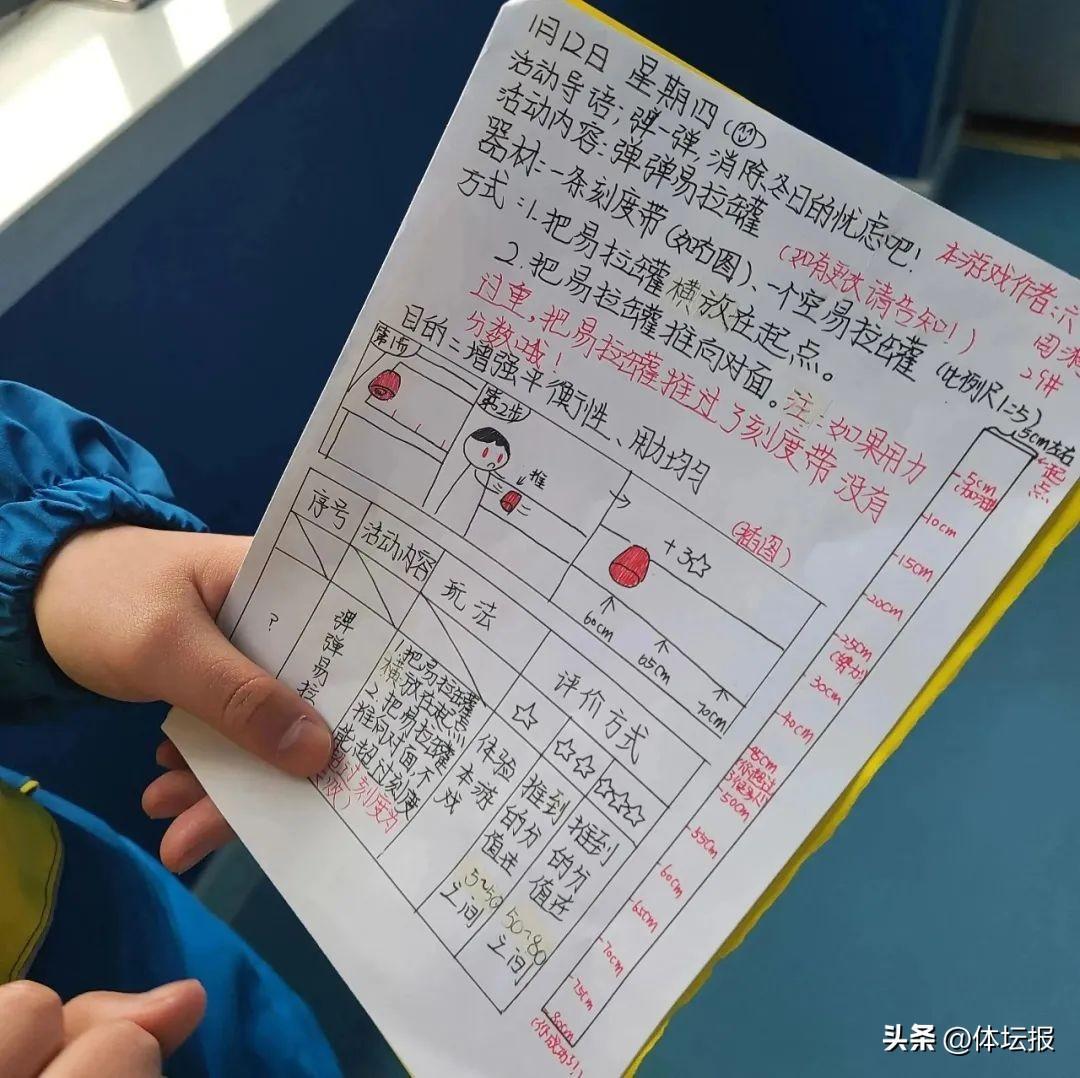 1月12日 星期四
活动导语:弹一弹,消除冬日的忧虑吧!
本游戏作者:六
活动内容:弹弹易拉罐
(如有更快请告知!)
器材:一条刻度带(如右图)、一个空易拉罐
(比例尺1:5)
方式:1.把易拉罐横放在起点。
2.把易拉罐推向对面。注:如果用力
过重,把易拉罐推过了刻度带没有
分数哦!
目的:增强平衡性、用力均匀
(插图)
第1步
第2步
推
+3☆
60cm
65cm
70cm
序号
活动内容
玩法
评价方式
☆
☆☆
☆☆☆
?
弹弹易拉
1.把易拉罐
横放在起点
2.把易拉罐
推向对面,不
能超过刻度
过刻度为
体验
本游
戏
推到
的分
值在
5~50
之间
推到
的分
值在
50~80
之间
15cm左右
起点
5cm
(加油)
10cm
15cm
20cm
25cm
(努力)
30cm
40cm
45cm
50cm
55cm
60cm
65cm
70cm
75cm
80cm
(你成功了!)
头条 @体坛报